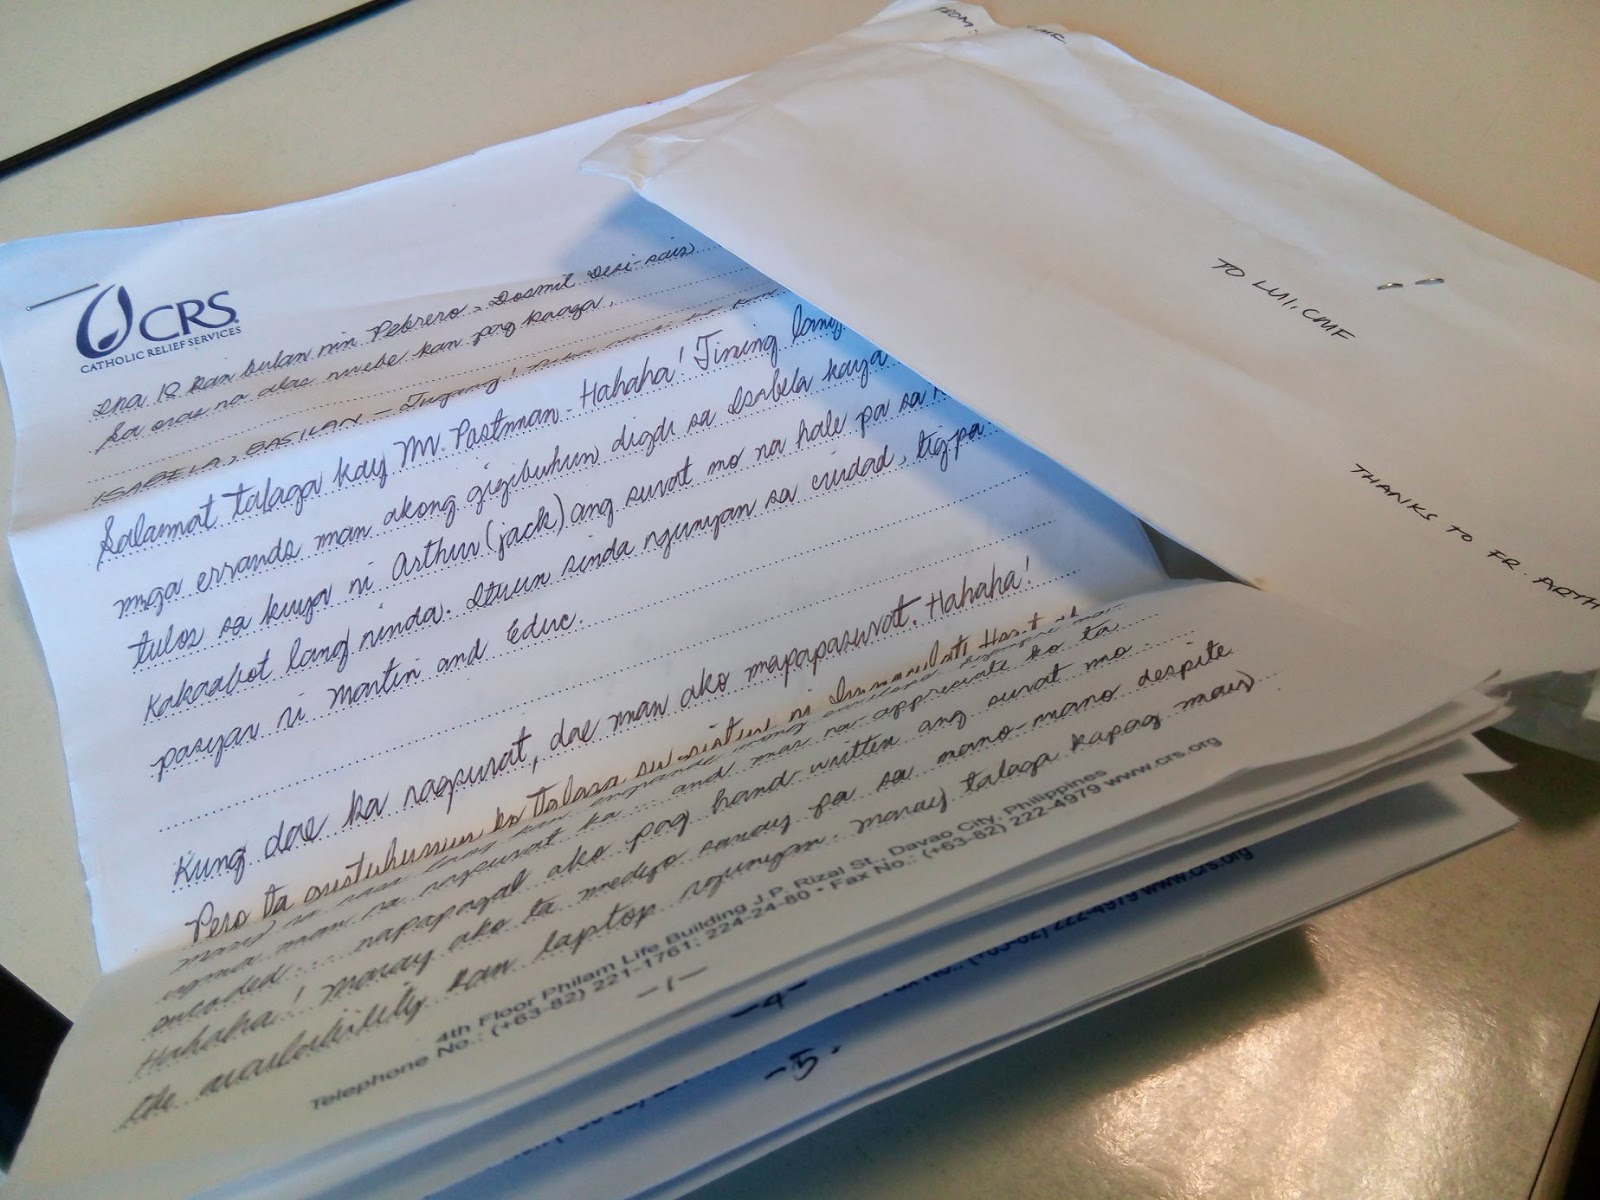 FROM: CMF
TO LUI, CMF
THANKS TO FR. ARTH
CRS
CATHOLIC RELIEF SERVICES
ika 18 kan bulan nin Pebrero, Dosmil Desi-sais
sa oras na alas nuebe kan pag kaaga.
ISABELA, BASILAN -
Salamat talaga kay Mr. Postman. Hahaha! Tining lang
mga errands man akong gigibuhun digdi sa Isabela kaya
tulos sa kuya ni Arthur (jack) ang surat mo na hale pa sa
Kakaabot lang ninda. Ituun sinda ngunyan sa ciudad, tig-pa-
pasyar ni Martin and Educ.
Kung dae ka nagsurat, dae man ako mapapasurat. Hahaha!
Pero ta talaga ni Immaculate Heart
man na nagsurat ka... and mas na-appreciate ko ta
encoded... napapagal ako pag hand written ang surat mo
Hahaha! Maray ako ta medyo sanay pa sa mano-mano despite
the availability kan laptop ngunyan. Maray talaga kapag
4th Floor Philam Life Building J.P. Rizal St., Davao City, Philippines
Telephone No.: (+63-82) 221-1761; 224-24-80 • Fax No.: (+63-82) 222-4979 www.crs.org
-1-
222-4979 www.crs.org
-4-
-5-